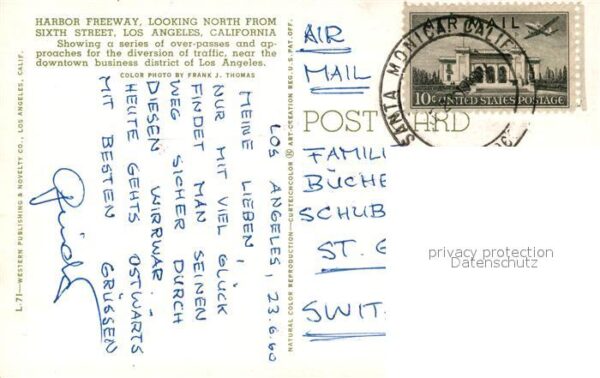 HARBOR FREEWAY, LOOKING NORTH FROM
SIXTH STREET, LOS ANGELES, CALIFORNIA
Showing a series of over-passes and ap-
proaches for the diversion of traffic, near the
downtown business district of Los Angeles.
COLOR PHOTO BY FRANK J. THOMAS
L-71—WESTERN PUBLISHING & NOVELTY CO., LOS ANGELES, CALIF.
LOS ANGELES, 23.6.60
MEINE LIEBEN,
NUR MIT VIEL GLÜCK
FINDET MAN SEINEN
WEG SICHER DURCH
DIESEN WIRRWAR.
HEUTE GEHTS OSTWÄRTS
MIT BESTEN GRÜSSEN
NATURAL COLOR REPRODUCTION—CURTEICHCOLOR ® ART-CREATION REG. U.S. PAT. OFF.
POST CARD
AIR MAIL
10¢ UNITED STATES POSTAGE
SANTA MONICA CALIF.
AIR
MAIL
FAMILI
BÜCHE
SCHUB
ST. G
SWIT
privacy protection
Datenschutz